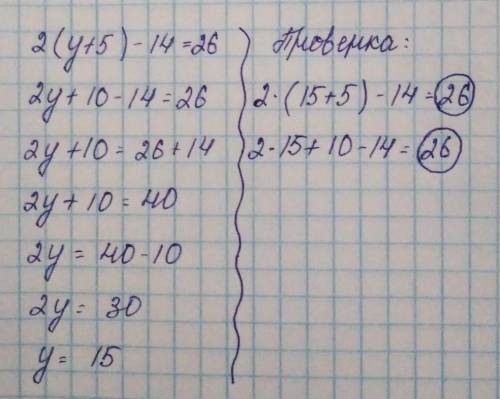 2(y+5)-14=26
2y+10-14=26
2y+10=26+14
2y+10=40
2y=40-10
2y=30
y=15
Проверка:
2·(15+5)-14=26
2·15+10-14=26